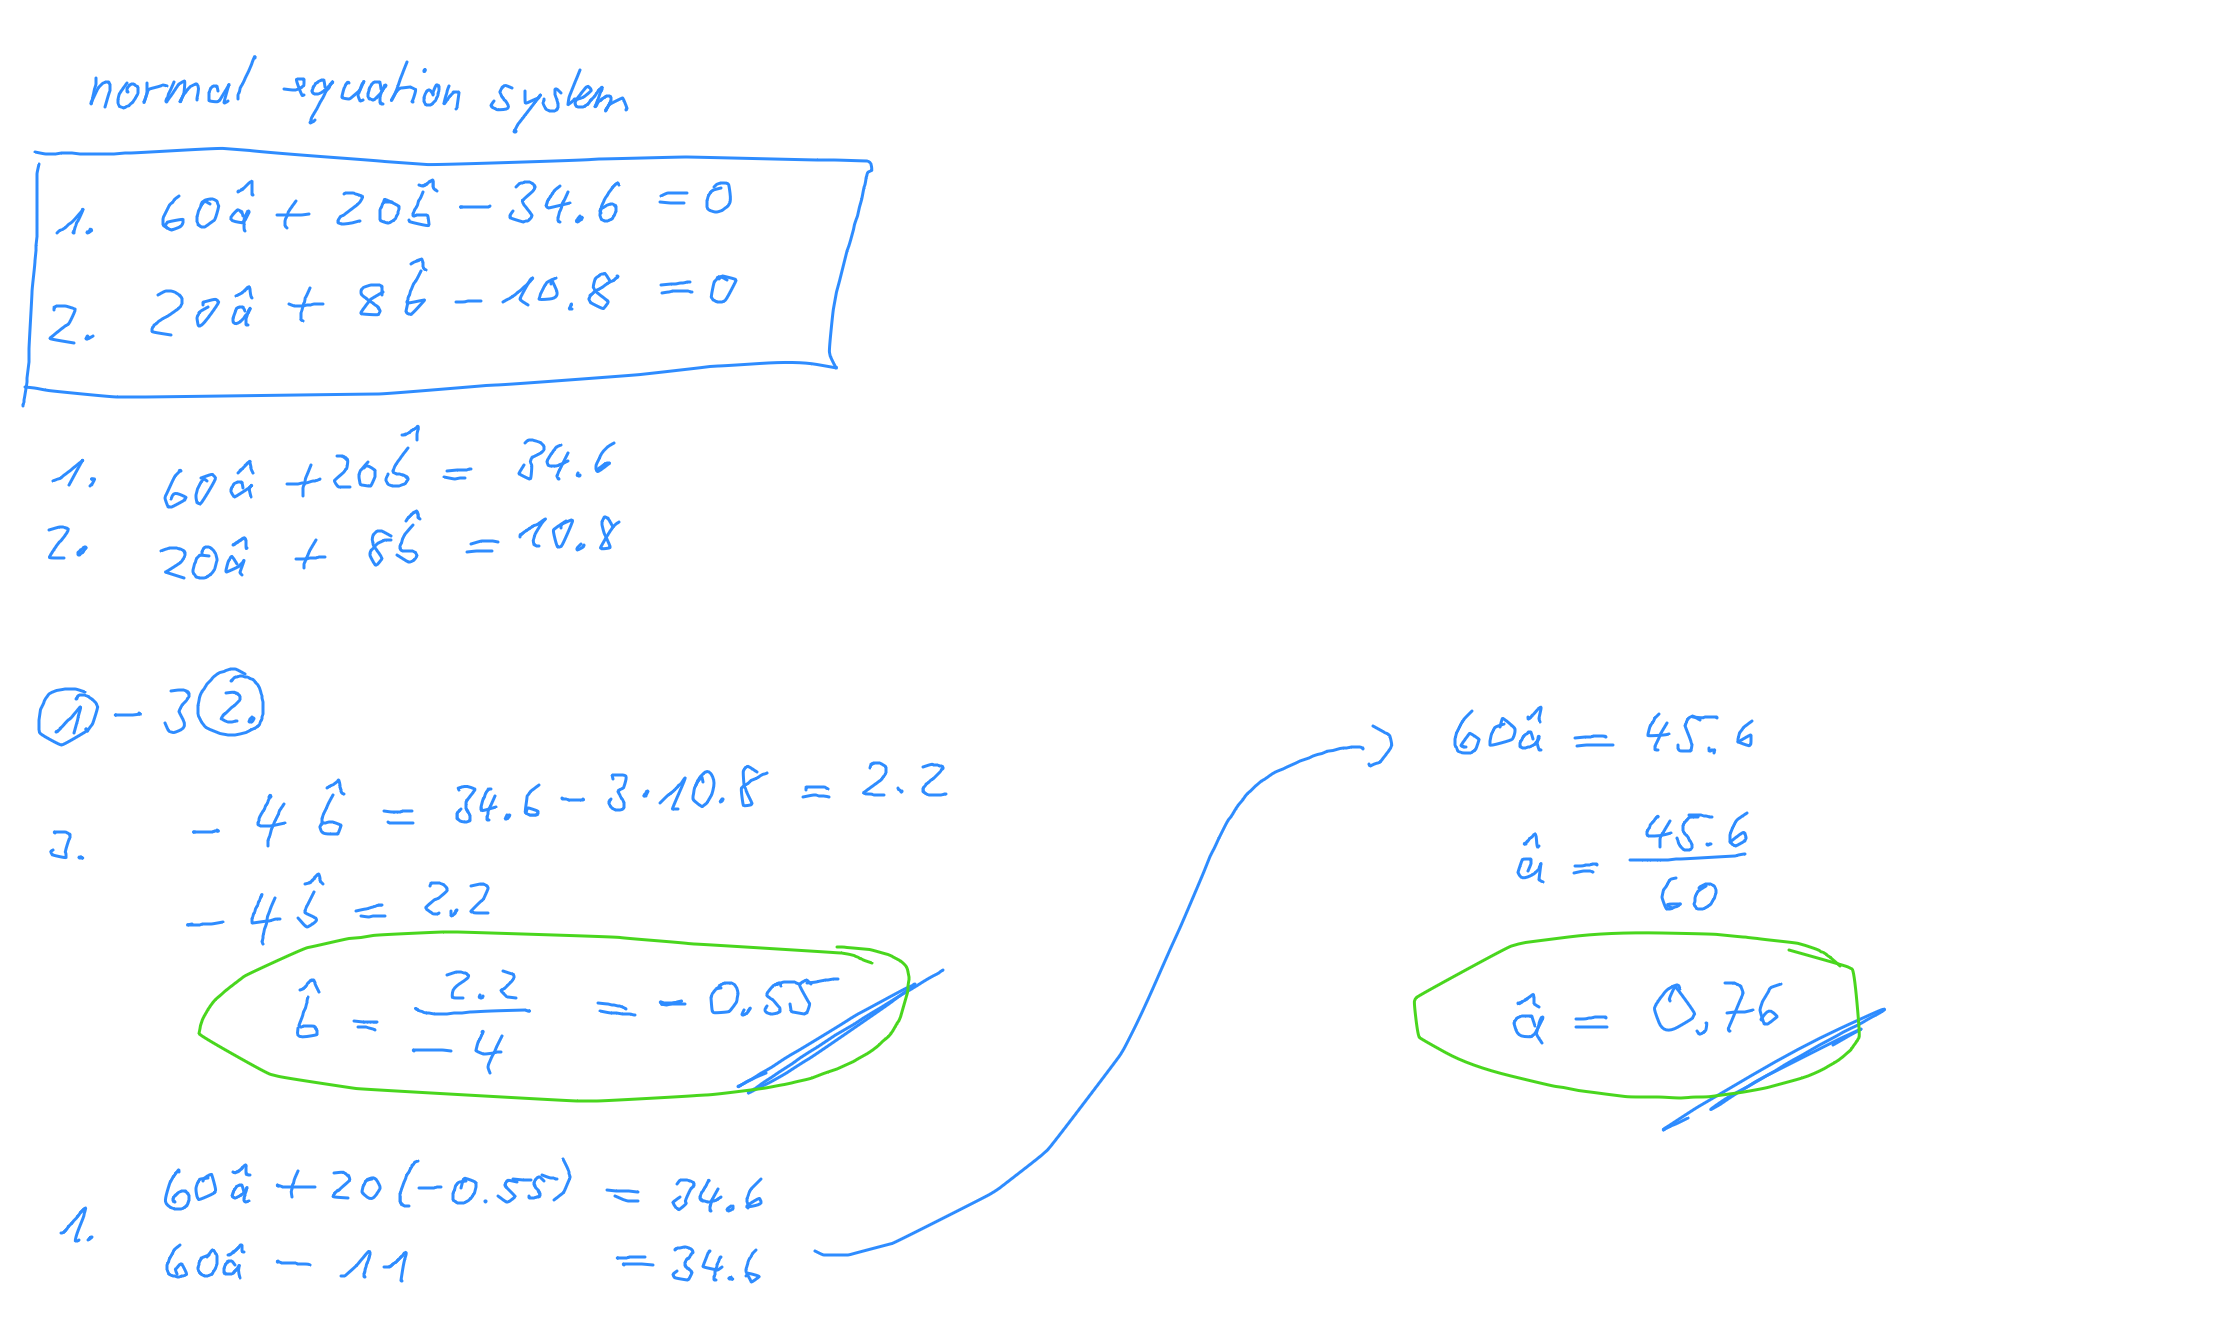 normal equation system
1. 60â + 20b̂ - 34.6 = 0
2. 20â + 8b̂ - 10.8 = 0
1. 60â + 20b̂ = 34.6
2. 20â + 8b̂ = 10.8
① - 3 ②.
3. - 4 b̂ = 34.6 - 3 · 10.8 = 2.2
- 4 b̂ = 2.2
b̂ = 2.2 / -4 = - 0,55
1. 60â + 20 (-0.55) = 34.6
60â - 11 = 34.6
60â = 45.6
â = 45.6 / 60
â = 0,76